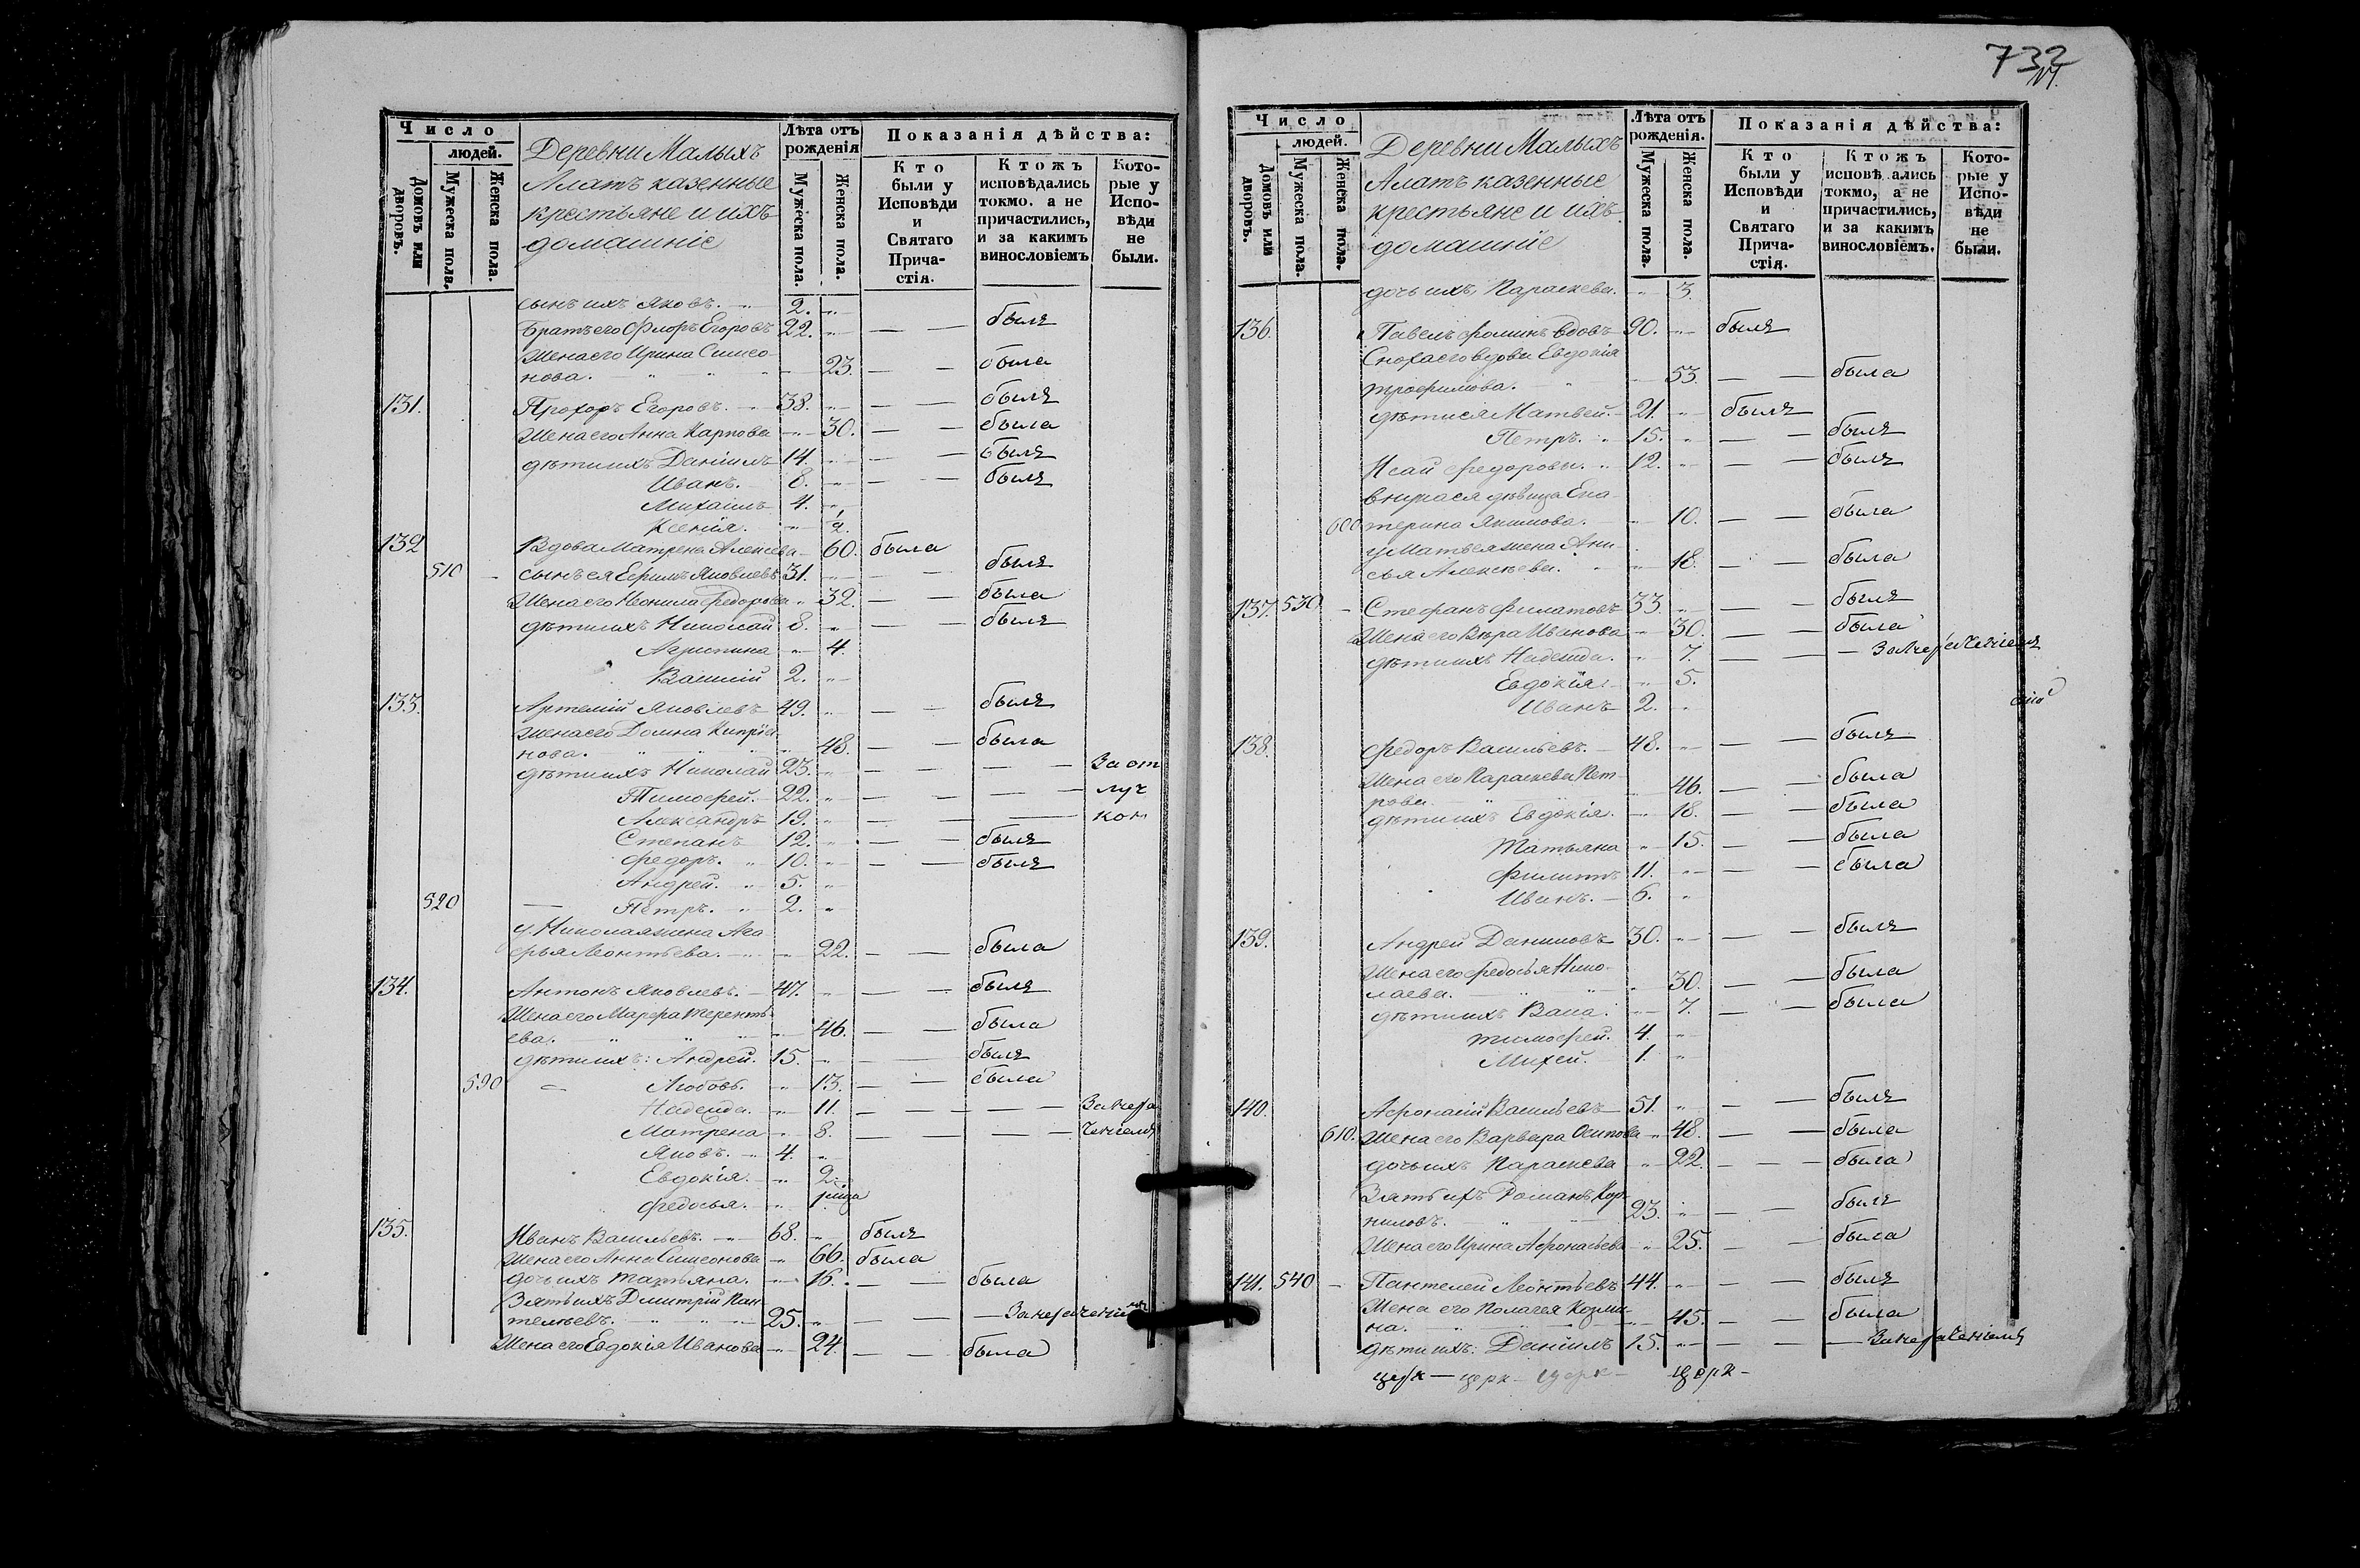 Число
людей.
Домовъ или дворовъ.
Мужеска пола.
Женска пола.
Деревни Малыхъ
Алатъ казенные
крестьяне и ихъ
домашніе
Лѣта отъ
рожденія
Мужеска пола.
Женска пола.
Показанія дѣйства:
Кто
были у
Исповѣди
и
Святаго
Прича-
стія.
Ктожъ
исповѣдались
токмо. а не
причастились,
и за какимъ
винословіемъ
Кото-
рые у
Испо-
вѣди
не
были.
сынъ ихъ Яковъ. 2.
Братъ его Флоръ Егоровъ 22. — — былъ
Жена его Ирина Симео-
нова. 23. — — была
131. Прохоръ Егоровъ. 38. — — былъ
Жена его Анна Карпова 30. — — была
дѣти ихъ Даніилъ 14. — — былъ
Иванъ. 8. — — былъ
Михаилъ 4.
Ксенія. 1/2.
132 Вдова Матрена Алексева 60. была
510 сынъ ея Ефимъ Яковлевъ 31. — — былъ
Жена его Неонила Федорова 32. — — была
дѣти ихъ Николай 8. — — былъ
Агрипина 4.
Василій 2.
133. Артемій Яковлевъ 49. — — былъ
Жена его Домна Кипрія-
нова. 48. — — была
дѣти ихъ Николай 23. — — — — За от
Тимофей. 22. — — — — луч
Александръ 19. — — — кою
Степанъ 12. — — былъ
Федоръ. 10. — — былъ
Андрей. 5.
520 — Петръ. 2.
у Николая жена Ага
фья Леонтьева. 22. — — была
134. Антонъ Яковлевъ. 47. — — былъ
Жена его Марфа Теренть
ева. 46. — — была
дѣти ихъ: Андрей. 15. — — былъ
590 — Любовь. 13. — — была
Надежда. 11. — — — — — За нера
Матрена 8. — — — — ченіемъ
Яковъ. 4.
Евдокія. 2.
Федосья. 1.
135. Иванъ Васильевъ. 68. былъ
Жена его Анна Симеонова 66. была
дочь ихъ Татьяна. 16. — — была
Зять ихъ Дмитрій Пан
телеевъ. 25. — — — За нераченіемъ
Жена его Евдокія Иванова 24. — — была
732
Число
людей.
Домовъ или дворовъ.
Мужеска пола.
Женска пола.
Деревни Малыхъ
Алатъ казенные
крестьяне и ихъ
домашніе
Лѣта отъ
рожденія.
Мужеска пола.
Женска пола.
Показанія дѣйства:
Кто
были у
Исповѣди
и
Святаго
Прича-
стія.
Ктожъ
исповѣдались
токмо, а не
причастились,
и за какимъ
винословіемъ.
Кото-
рые у
Испо-
вѣди
не
были.
дочь ихъ Параскева. 3.
136. Павелъ Фоминъ вдовъ 90. былъ
Сноха его вдова Евдокія
Трофимова. 53. — — была
дѣти ея Матвей. 21. былъ
Петръ. 15. — — былъ
Исай Федоровы. 12. — — былъ
внука ея дѣвица Ека-
600 терина Якимова. 10. — — была
у Матвея жена Ани-
сья Алексѣева. 18. — — была
137. 530 — Стефанъ Филатовъ 33. — — былъ
Жена его Вѣра Иванова 30. — — была
дѣти ихъ Надежда. 7. — — — За нераченіемъ
Евдокія. 5.
Иванъ 2.
138. Федоръ Васильевъ. 48. — — былъ
Жена его Параскева Пет-
рова. 46. — — была
дѣти ихъ Евдокія. 18. — — была
Татьяна 15. — — была
Филиппъ 11. — — была
Иванъ. 6.
139. Андрей Даниловъ 30. — — былъ
Жена его Федосья Нико-
лаева. 30. — — была
дѣти ихъ Васа. 7. — — была
Тимофей. 4.
Михей. 1.
140. Афонасій Васильевъ 51. — — былъ
610. Жена его Варвара Осипова 48. — — была
дочь ихъ Параскева 22. — — — была
Зять ихъ Романъ Кор-
ниловъ. 23. — — былъ
Жена его Ирина Афонасьева 25. — — была
141. 540 — Пантелей Леонтьевъ 44. — — былъ
Жена его Пелагея Козми-
на. 45. — — была
дѣти ихъ: Даніилъ 15. — — — За нераченіемъ
церк — церк — церк — церк —